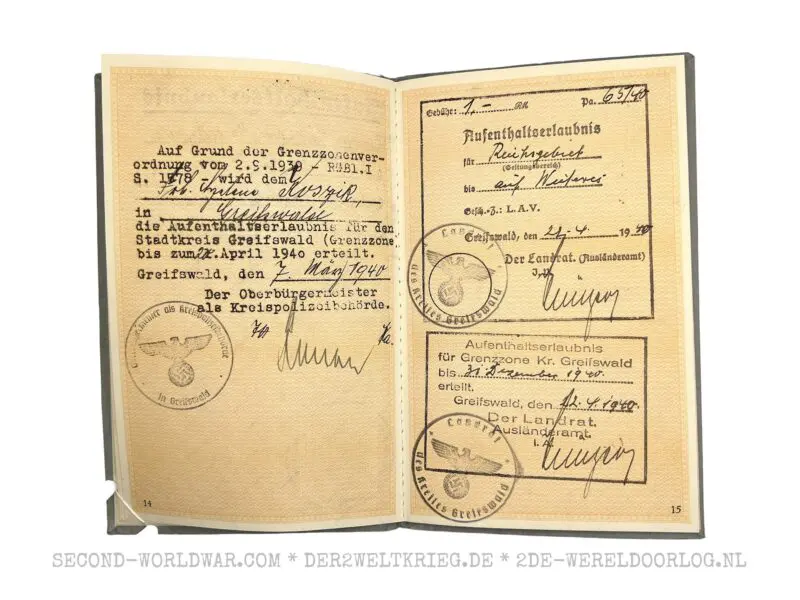 Auf Grund der Grenzzonenver-
ordnung vom 2.9.1939 - RGBl.I
S. 1578 - wird dem
in Greifswald
die Aufenthaltserlaubnis für den
Stadtkreis Greifswald (Grenzzone)
bis zum April 1940 erteilt.
Greifswald, den 7. März 1940
Der Oberbürgermeister
als Kreispolizeibehörde.
in Greifswald
14
Gebühr: 1,- RM Pa. 65/40
Aufenthaltserlaubnis
für Reichsgebiet
(Geltungsbereich)
bis auf Weiteres
Gesch.-Z.: L.A.V.
Greifswald, den 1940
Der Landrat. (Ausländeramt)
Landrat
des Kreises Greifswald
Aufenthaltserlaubnis
für Grenzzone Kr. Greifswald
bis 31. Dezember 1940.
erteilt.
Greifswald, den 12.4.1940.
Der Landrat.
Ausländeramt.
I.A.
Landrat
des Kreises Greifswald
15
SECOND-WORLDWAR.COM * DER2WELTKRIEG.DE * 2DE-WERELDOORLOG.NL